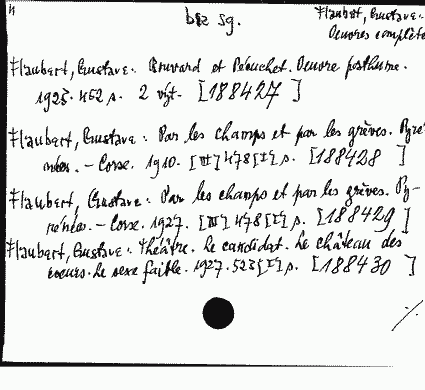 bez sg.
Flaubert, Gustave.
Oeuvres complète
Flaubert, Gustave: Bouvard et Pécuchet. Oeuvre posthume.
1923. 452 p. 2 [188427]
Flaubert, Gustave: Par les champs et par les grèves. Pyré-
nées. – Corse. 1910. [III] 478 [I] p. [188428]
Flaubert, Gustave: Par les champs et par les grèves. Py-
rénées. – Corse. 1927. [III] 478 [I] p. [188429]
Flaubert, Gustave: Théâtre. Le candidat. Le château des
coeurs. Le sexe faible. 1927. 523 [I] p. [188430]
./.